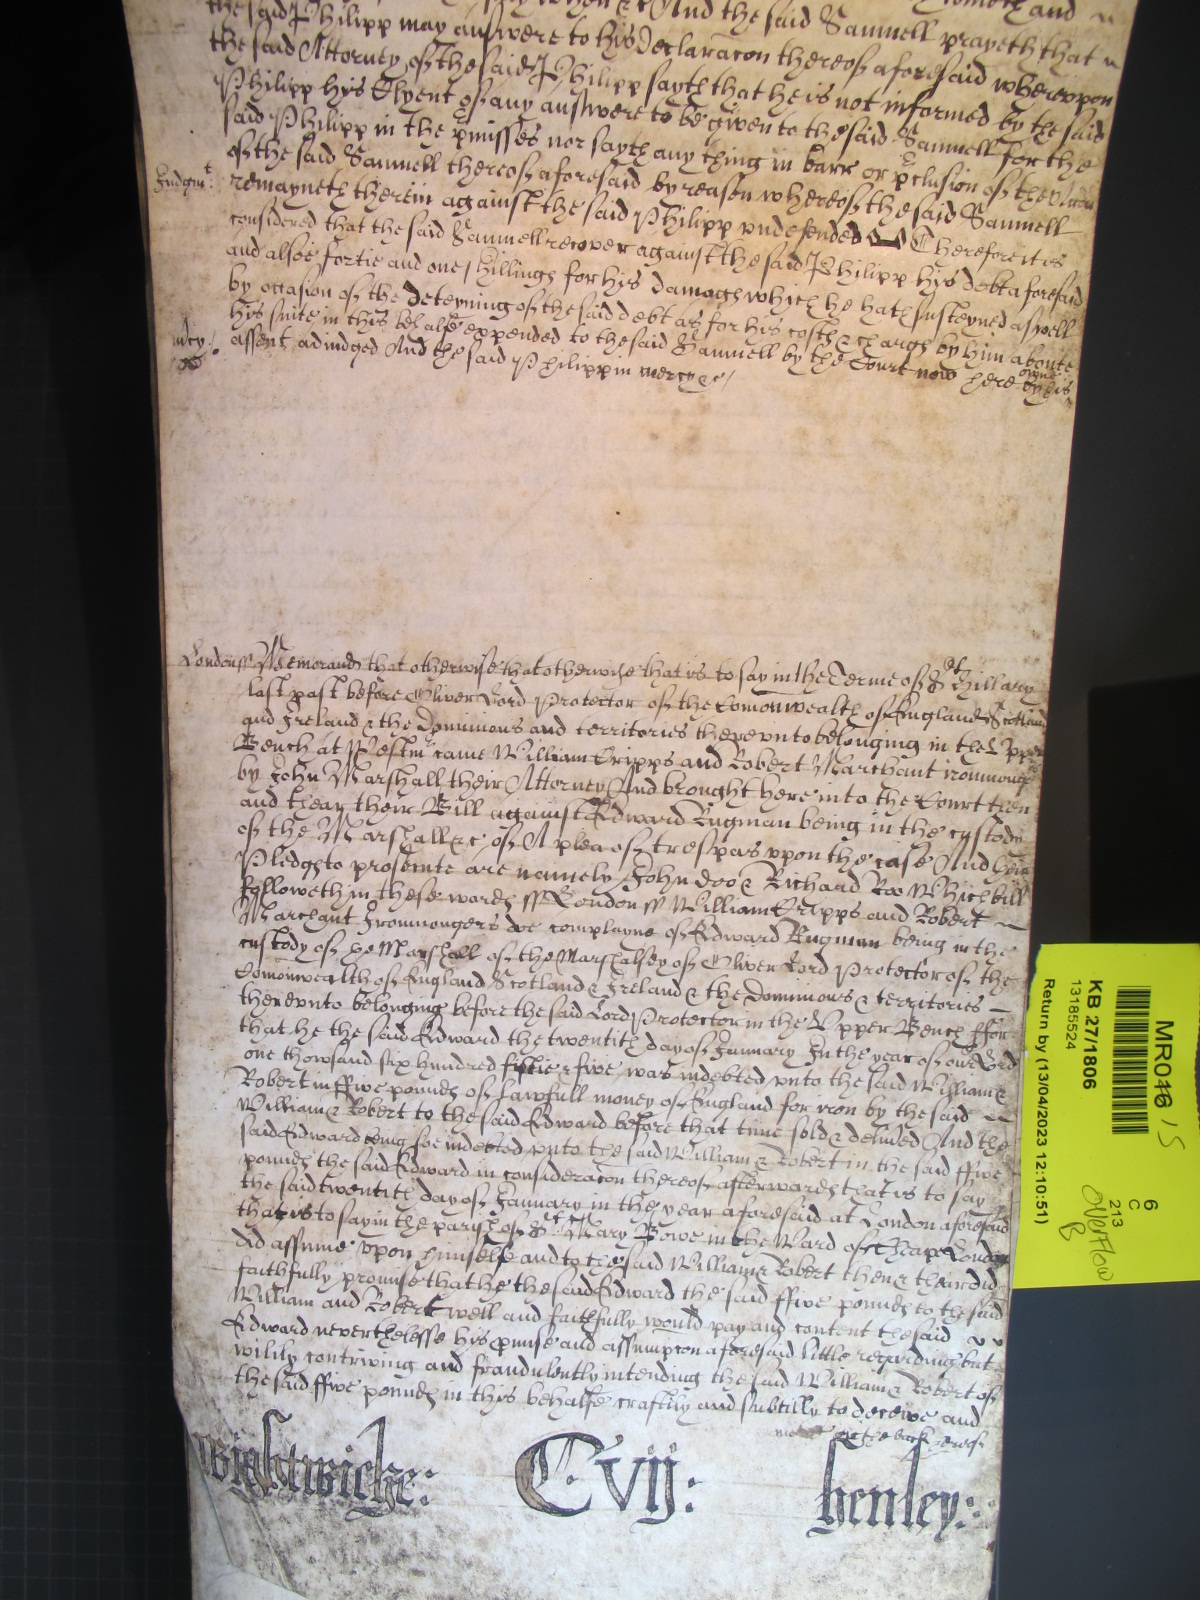 the said Philipp may answere to his Declaracon thereof aforesaid whereupon
the said Attorney of the said Philipp sayth that he is not informed by the said
Philipp his Clyent of any answere to be given to the said Samuell for the
said Philipp in the pmisses nor sayth any thing in barr or pclusion of the
of the said Samuell thereof aforesaid by reason whereof the said Samuell
Judgmt: remayneth therein against the said Philipp undefended Therefore it is
considered that the said Samuell recover against the said Philipp his debt aforesaid
and alsoe fortie and one shillings for his damages which he hath susteyned aswell
by occasion of the deteyning of the said debt as for his costs & charges by him aboute
his suite in this behalfe expended to the said Samuell by the Court now here by his owne
mcy: assent adiudged And the said Philipp in mercy &c/
London ss Memorand that otherwise that otherwise that is to say in the Terme of St Hillary
last past before Oliver Lord Protector of the Comonwealth of England Scotland
and Ireland & the Dominions and territories thereunto belonging in the Upper
Bench at Westmr came William Cripps and Robert Marchant ironmongers
by John Marshall their Attorney And brought here into the Court then
and thear their Bill against Edward Rugman being in the custody
of the Marshall &c of A plea of trespas upon the case And
Pledges to prosecute are namely John doo & Richard Roo Which bill
followeth in these words ss London ss William Cripps and Robert
Marchant Ironmongers doe complayne of Edward Rugman being in the
custody of the Marshall of the Marshalsey of Oliver Lord Protector of the
Comonwealth of England Scotland & Ireland & the Dominions & territories
thereunto belonging before the said Lord Protector in the Upper Bench ffor
that he the said Edward the twentith day of January In the year of our Lord
one thousand six hundred fiftie & five was indebted unto the said William &
Robert in ffive pounds of lawfull money of England for iron by the said
William & Robert to the said Edward before that time sold & delivered And the
said Edward being soe indebted unto the said William & Robert in the said ffive
pounds the said Edward in consideracon thereof afterwards that is to say
the said twentith day of January in the year aforesaid at London aforesaid
that is to say in the parish of St Mary Bowe in the Ward of Cheape London
did assume upon himselfe and to the said William & Robert then & thear did
faithfully promise that he the said Edward the said ffive pounds to the said
William and Robert well and faithfully would pay and content the said
Edward neverthelesse his pmise and assumpcon aforesaid little regarding but
wilily contriving and fraudulently intending the said William & Robert of
the said ffive pounds in this behalfe craftily and subtilly to deceive and
Wightwicke: Cvij: henley:
MR046 15
KB 27/1806
13185524
Return by (13/04/2023 12:10:51)
6
C
213
Overflow
B